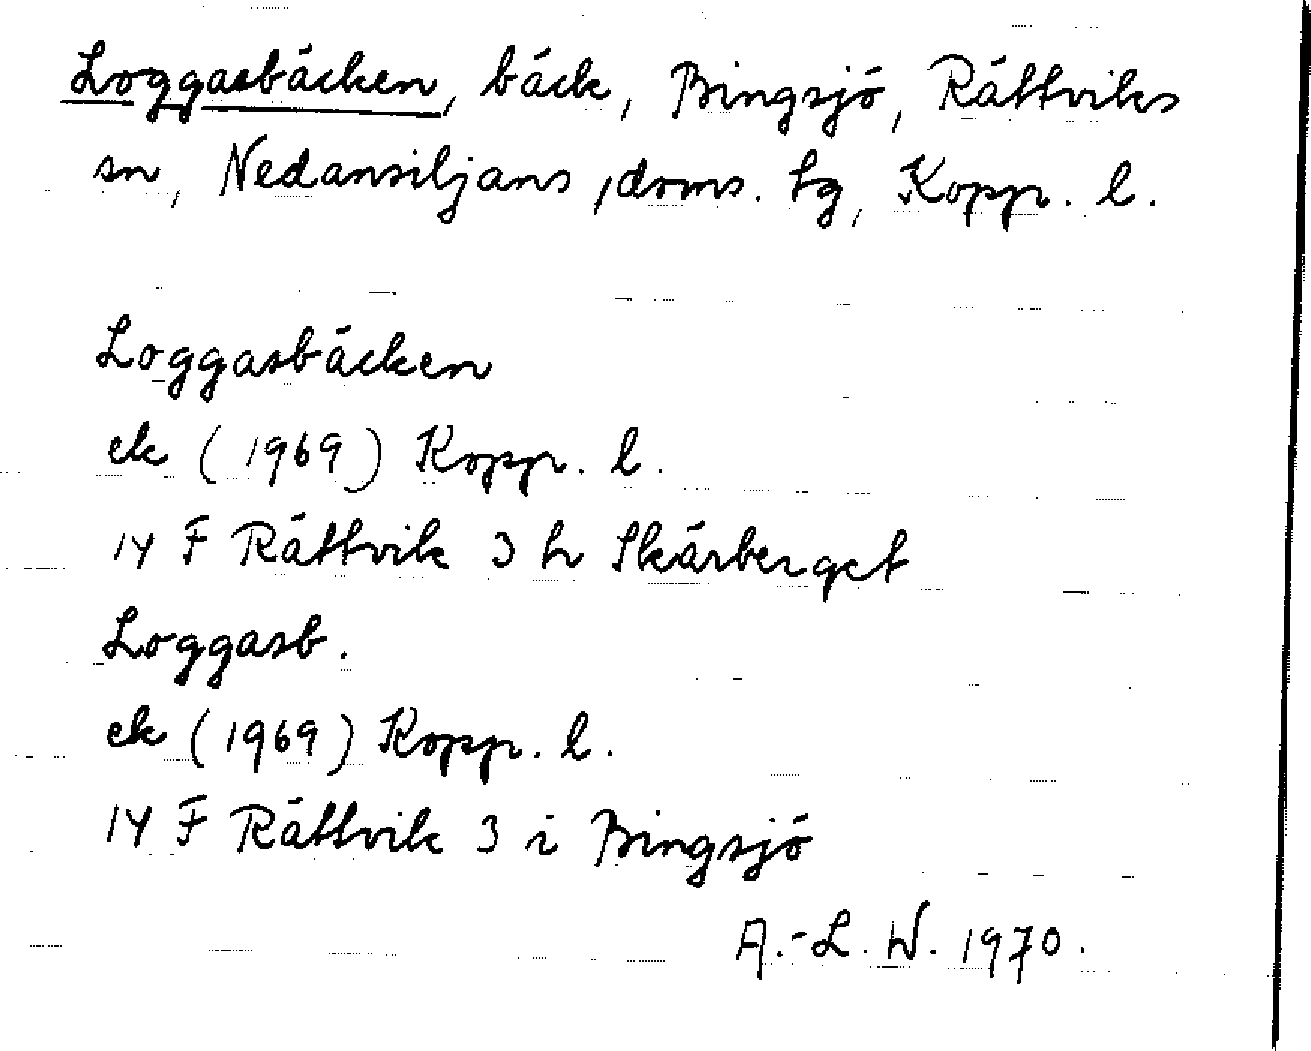 Loggasbäcken, bäck, Bingsjö, Rättviks
sn, Nedansiljans, doms. tg, Kopp. l.
Loggasbäcken
ek (1969) Kopp. l.
14 F Rättvik 3 h Skärberget
Loggasb.
ek (1969) Kopp. l.
14 F Rättvik 3 i Bingsjö
A.-L. W. 1970.